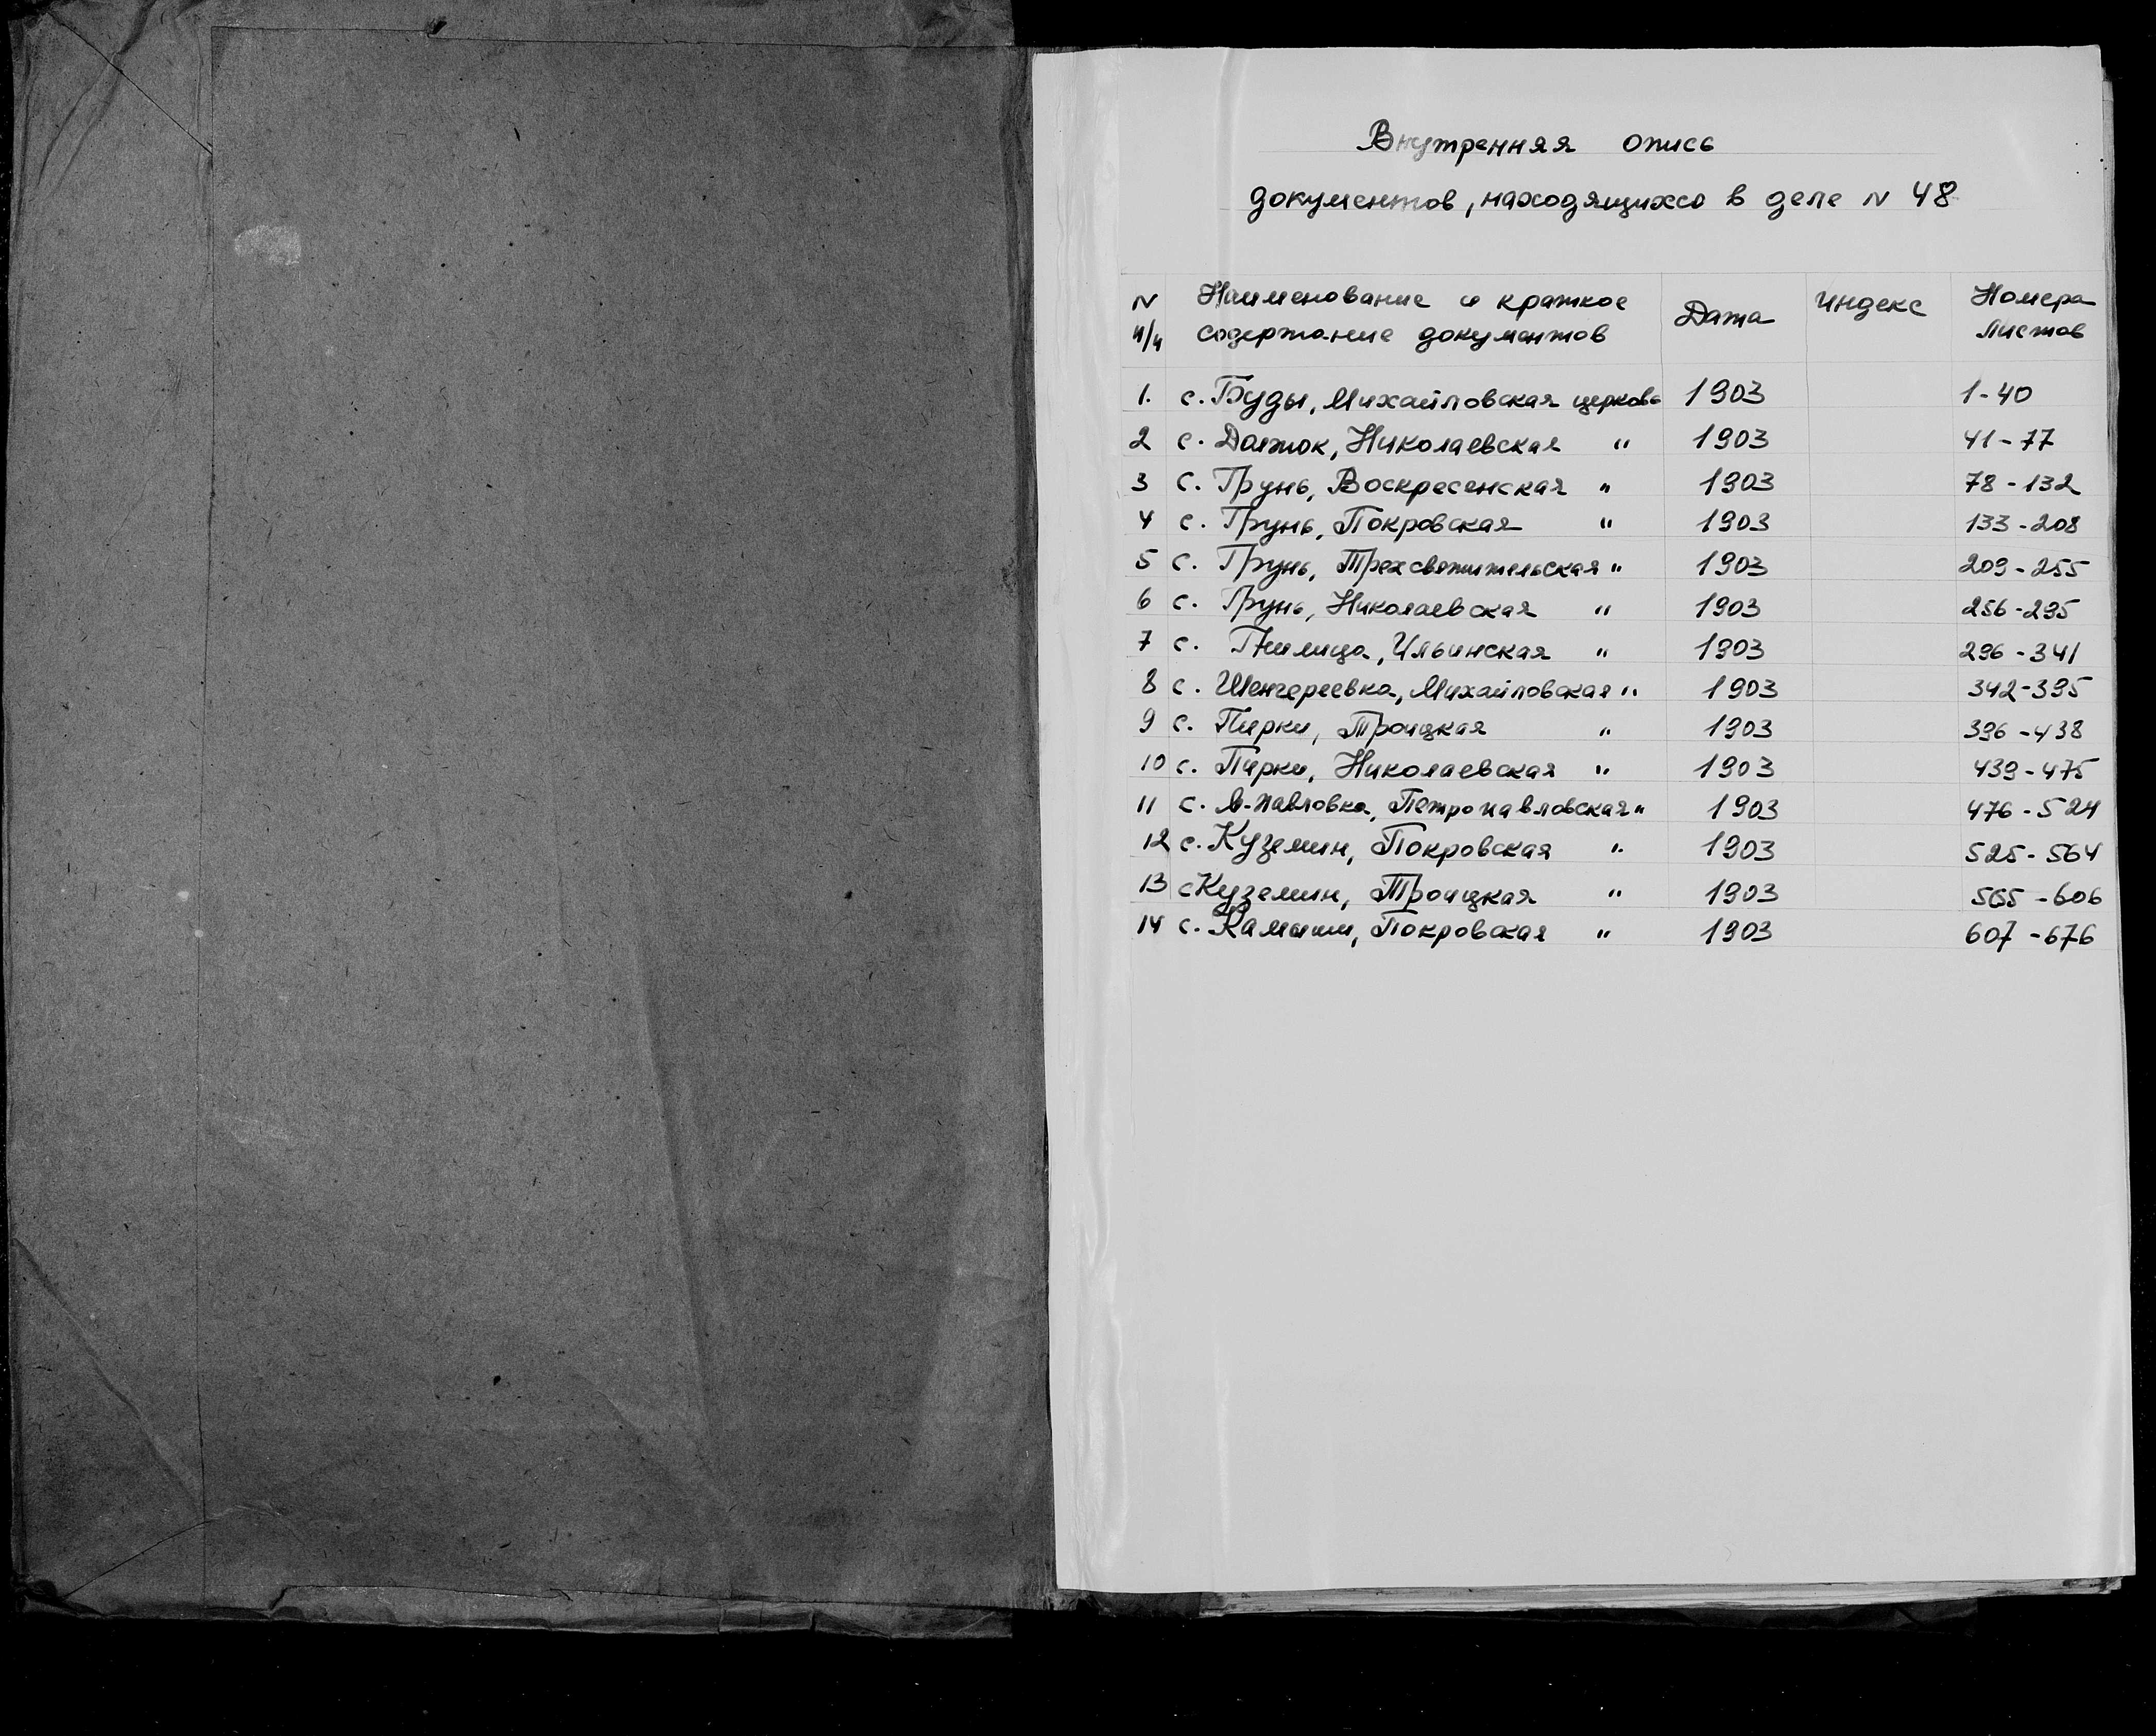 Внутренняя опись
документов, находящихся в деле N 48
N п/п Наименование и краткое содержание документов Дата индекс Номера листов
1. с. Буды, Михайловская церковь 1903 1-40
2 с. Должок, Николаевская " 1903 41-77
3 с. Грунь, Воскресенская " 1903 78-132
4 с. Грунь, Покровская " 1903 133-208
5 с. Грунь, Трехсвятительская " 1903 209-255
6 с. Грунь, Николаевская " 1903 256-295
7 с. Гнилица, Ильинская " 1903 296-341
8 с. Шенгереевка, Михайловская " 1903 342-395
9 с. Пирки, Троицкая " 1903 396-438
10 с. Пирки, Николаевская " 1903 439-475
11 с. М-Павловка, Петропавловская " 1903 476-524
12 с. Куземин, Покровская " 1903 525-564
13 с Куземин, Троицкая " 1903 565-606
14 с. Камыши, Покровская " 1903 607-676